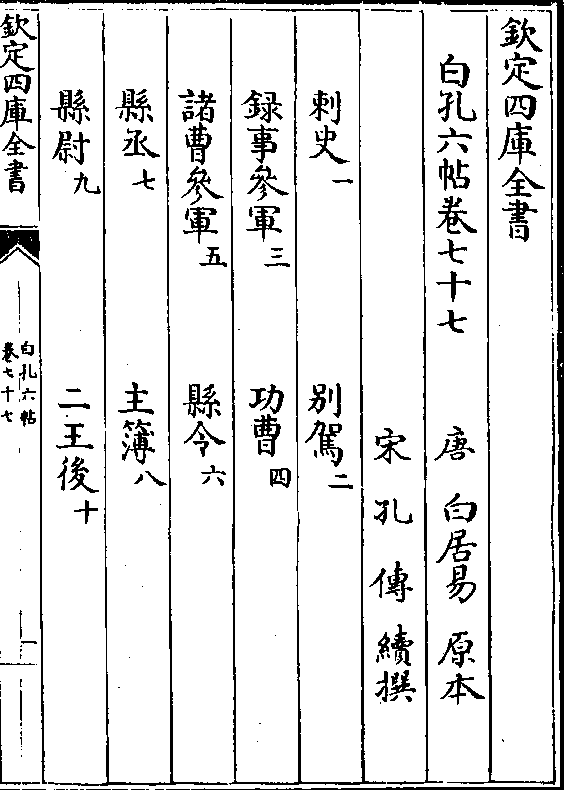 欽定四庫全書
白孔六帖卷七十七
唐 白居易 原本
宋 孔傳 續撰
刺史一 别駕二
録事參軍三 功曹四
諸曹參軍五 縣令六
縣丞七 主簿八
縣尉九 二王後十
欽定四庫全書
白孔六帖
卷七十七
一